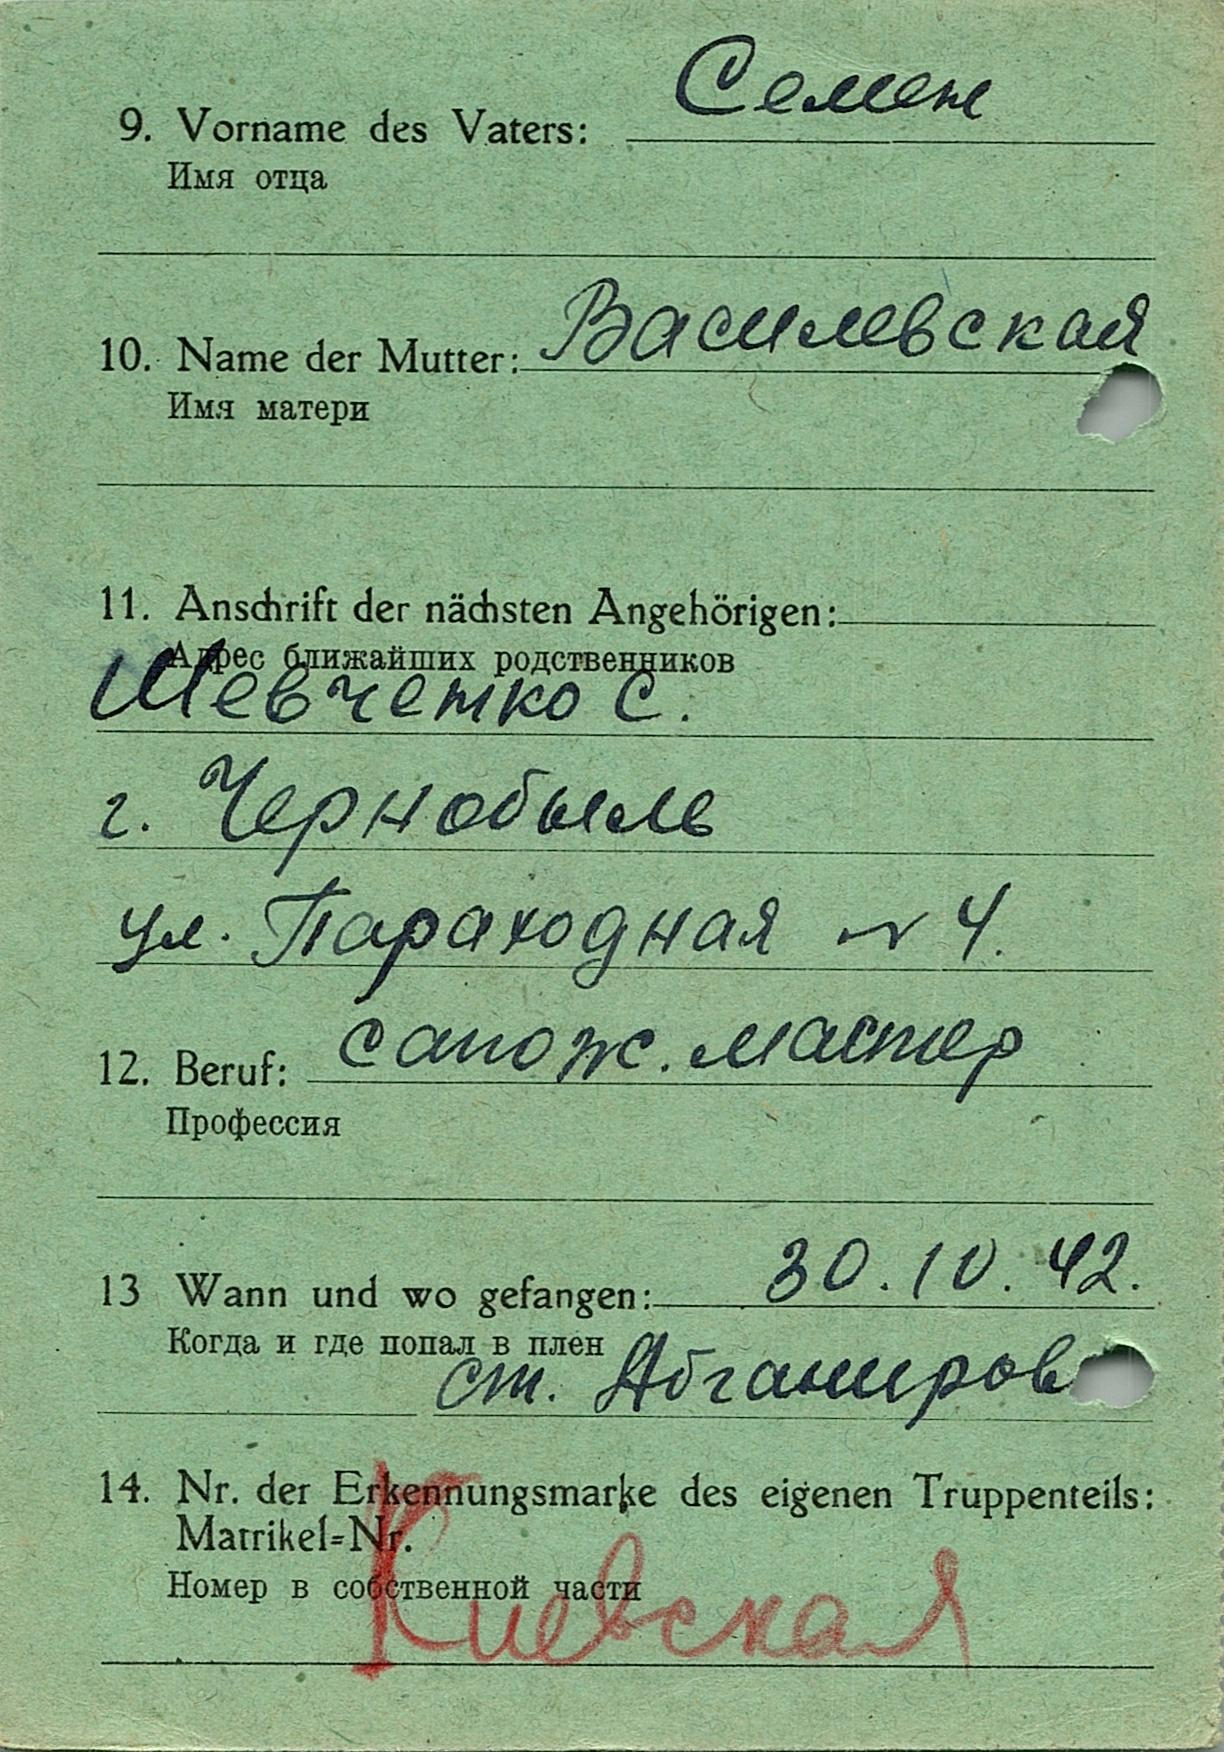 9. Vorname des Vaters: Семен
Имя отца
10. Name der Mutter: Василевская
Имя матери
11. Anschrift der nächsten Angehörigen:
Адрес ближайших родственников
Шевченко С.
г. Чернобыль
ул. Параходная N 4.
12. Beruf: сапож. мастер
Профессия
13 Wann und wo gefangen: 30.10.42.
Когда и где попал в плен
ст. Абганиров
14. Nr. der Erkennungsmarke des eigenen Truppenteils:
Matrikel=Nr.
Номер в собственной части
Киевская